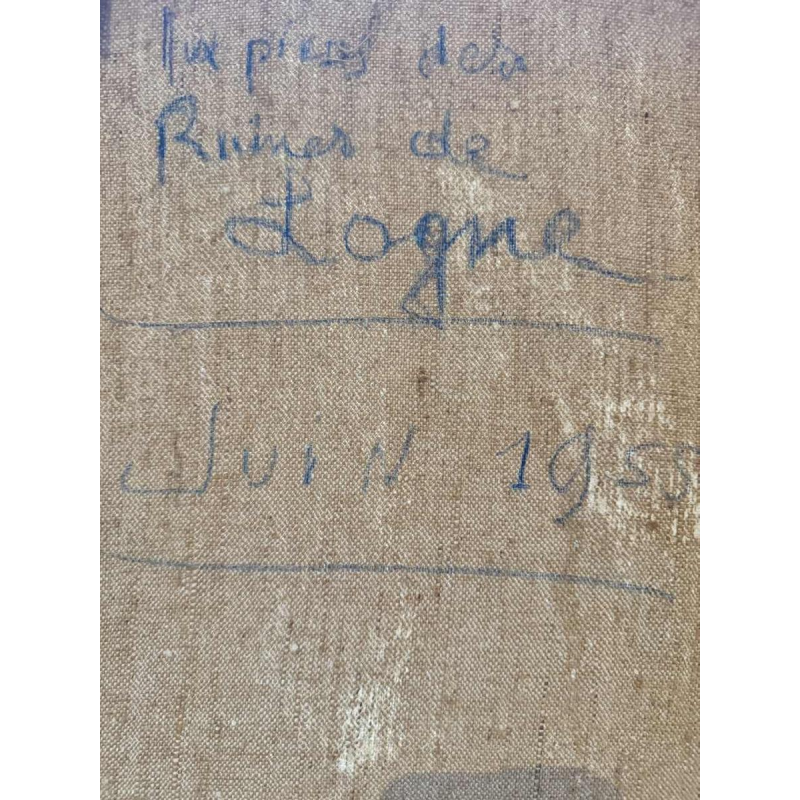 Aux pieds des
Ruines de
Logne
Juin 1955